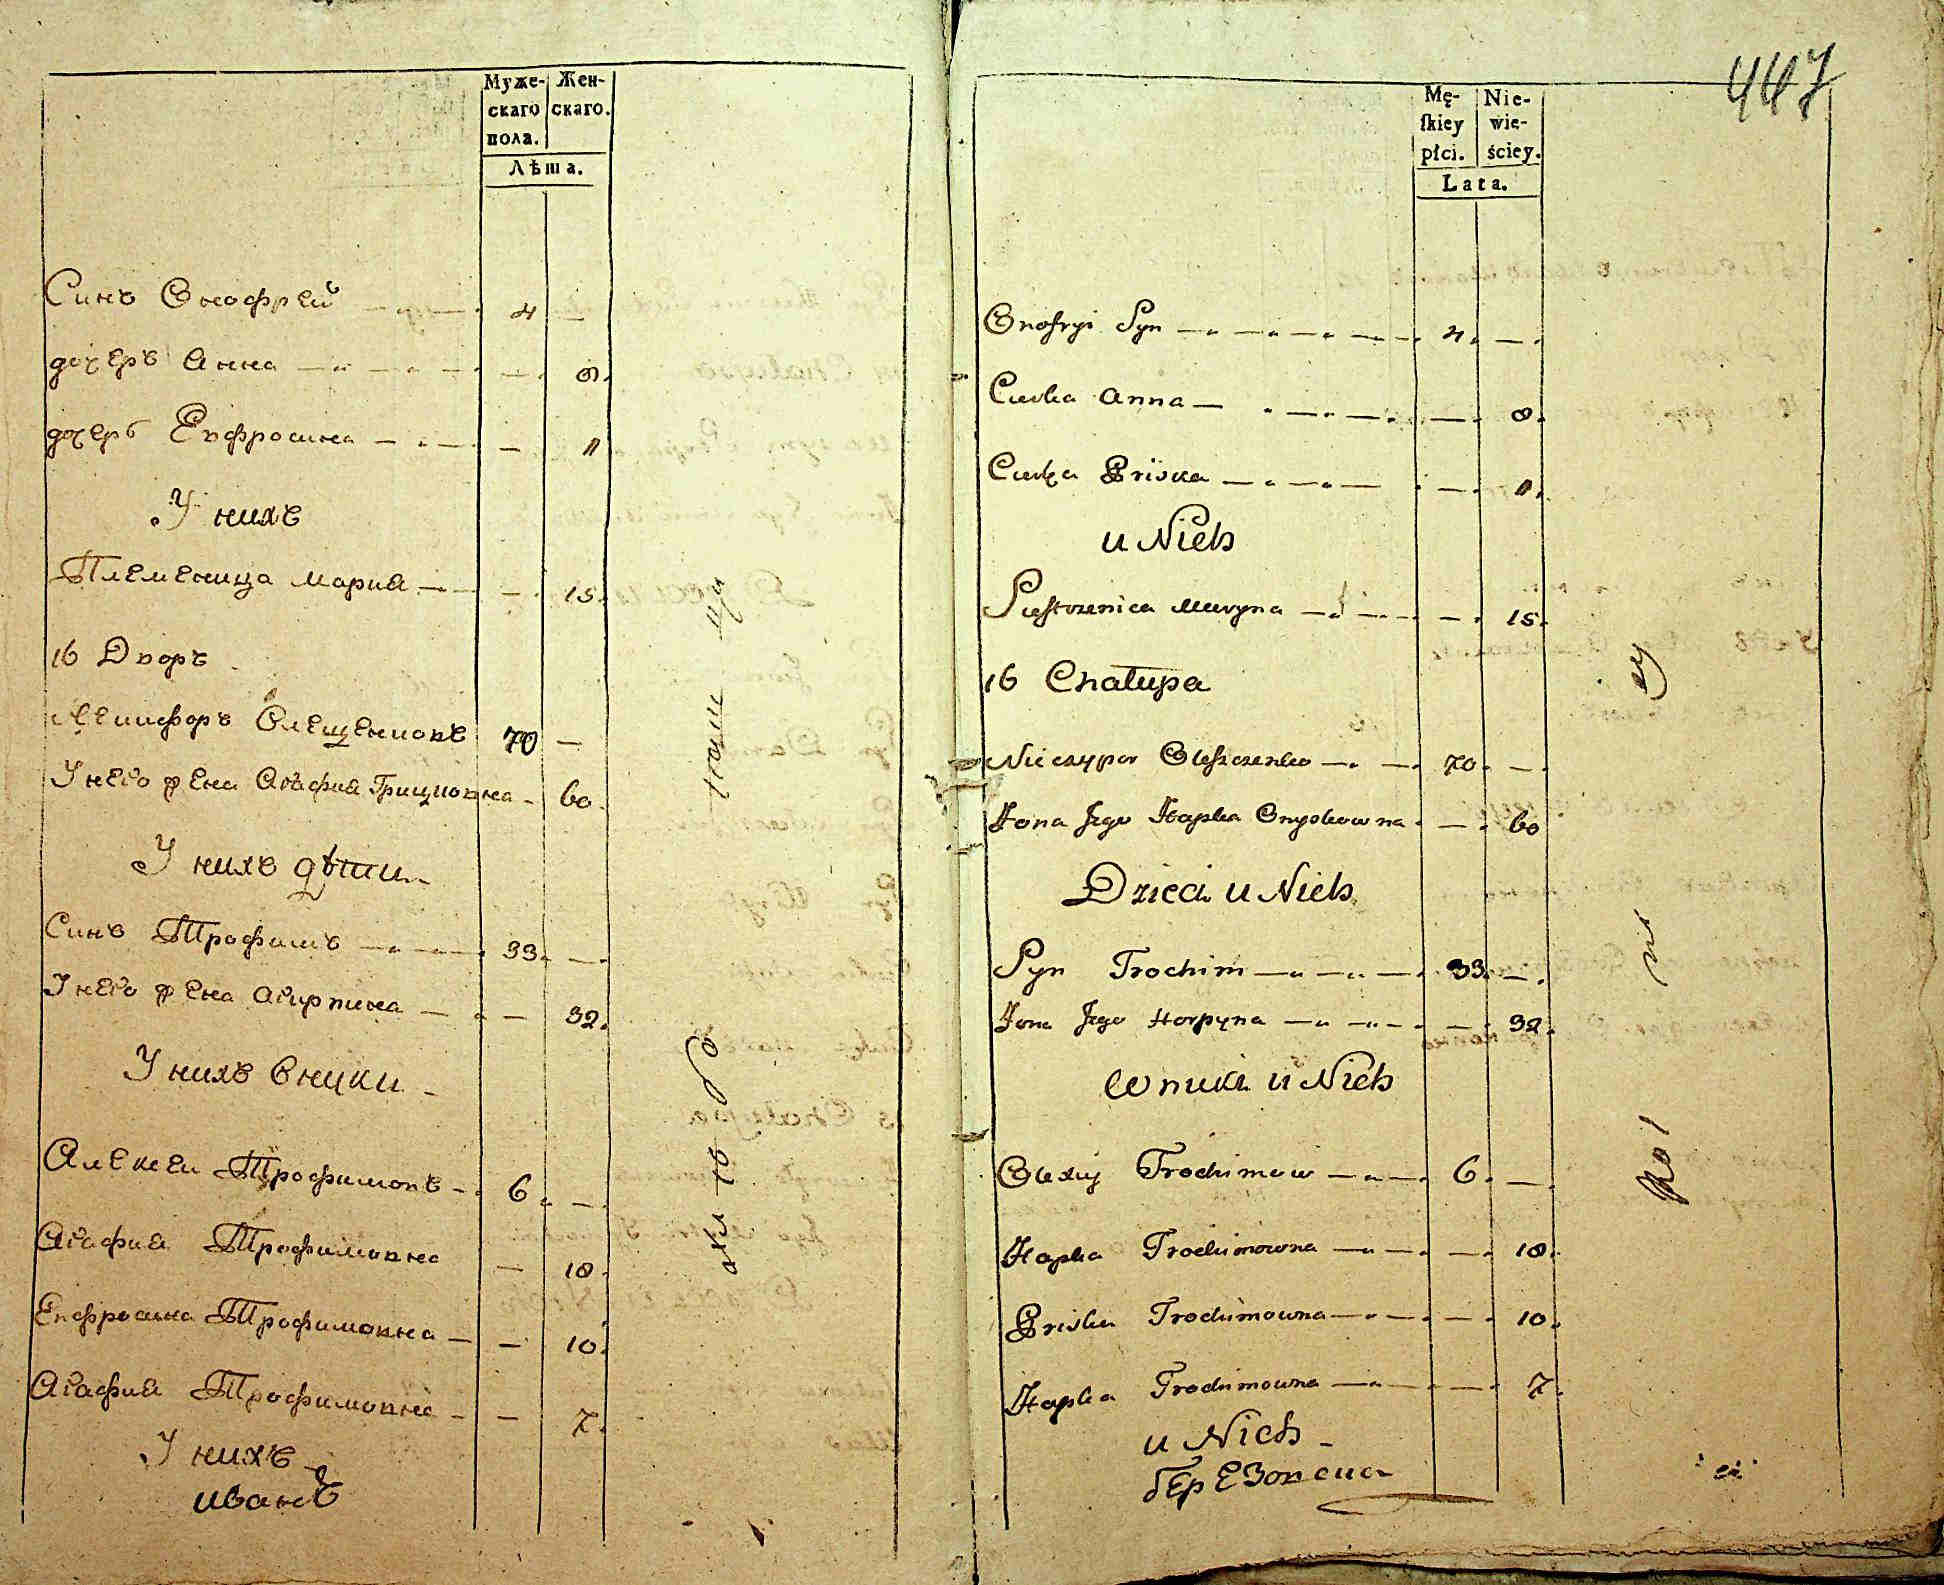 Муже-
скаго
пола.
Жен-
скаго.
Лѣта.
Синъ Онофрей 4 —
дочеръ Анна — 8.
дочеръ Евфросина — 1
У нихъ
Племеница Мария — 15.
16 Дворъ
Никифоръ Олещенковъ 70 —
У него жена Агафия Грицковна — 60.
У нихъ дѣти
Синъ Трофимъ 33. —
У него жена Агирпина — 32.
У нихъ внуки
Алексеи Трофимовъ 6. —
Агафия Трофимовна — 18.
Евфросина Трофимовна — 10.
Агафия Трофимовна — 7.
У нихъ
иванъ
447
Mę-
skiey
płci.
Nie-
wie-
ściey.
Lata.
Onofryi Syn 4. —
Curka Anna — 8.
Curka Priska — 1.
u Nich
Siestrzenica Maryna — 15.
16 Chałupa
Nieczypor Oleszczenko 70. —
Żona Jego Hapka Onyskowna — 60
Dzieci u Nich
Syn Trochim 33. —
Żona Jego Horpyna — 32.
Wnuki u Nich
Olexiy Trochimow 6. —
Hapka Trochimowna — 18.
Priska Trochimowna — 10.
Hapka Trochimowna — 7.
u Nich
березовски